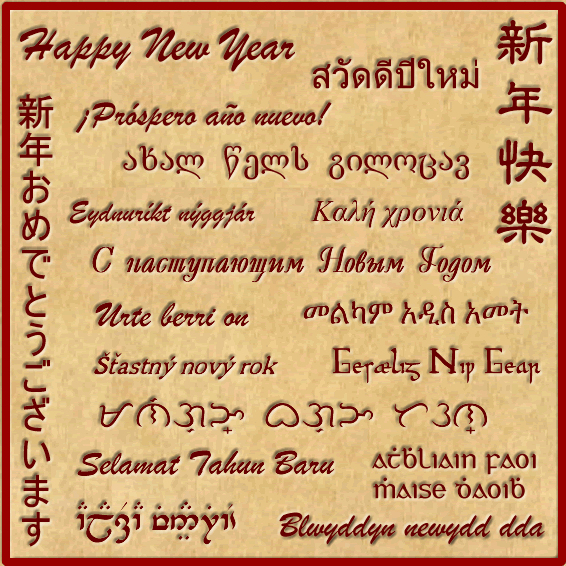 Happy New Year
สวัดดีปีใหม่
新年快樂
新年おめでとうございます
¡Próspero año nuevo!
ახალ წელს გილოცავ
Eydnuríkt nýggjár
Καλή χρονιά
С наступающим Новым Годом
Urte berri on
መልካም አዲስ አመት
Šťastný nový rok
Gesælig Niƿ Gear
ᜋᜈᜒᜄᜓᜅ᜔ ᜊᜄᜓᜅ᜔ ᜆᜂᜈ᜔
Selamat Tahun Baru
aṫḃliain faoi
ṁaise ḋaoiḃ
Blwyddyn newydd dda